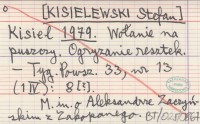 [KISIELEWSKI Stefan]
Kisiel 1979. Wołanie na
puszczy. Ogryzanie resztek.
– Tyg. Powsz. 33, nr 13
(1 IV): 8 [!].
M. in. o Aleksandrze Zaczyń-
skim z Zakopanego.